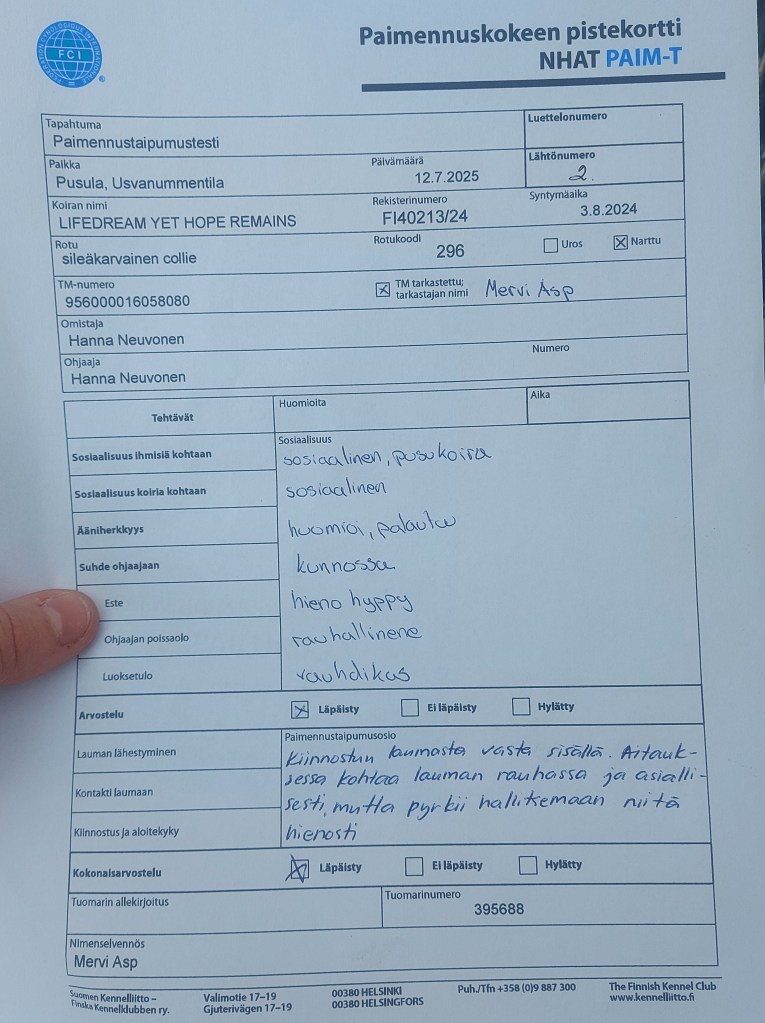 FCI
Paimennuskokeen pistekortti
NHAT PAIM-T
Tapahtuma
Paimennustaipumustesti
Luettelonumero
Paikka
Pusula, Usvanummentila
Päivämäärä
12.7.2025
Lähtönumero
2.
Koiran nimi
LIFEDREAM YET HOPE REMAINS
Rekisterinumero
FI40213/24
Syntymäaika
3.8.2024
Rotu
sileäkarvainen collie
Rotukoodi
296
Uros
Narttu
TM-numero
956000016058080
TM tarkastettu;
tarkastajan nimi
Mervi Asp
Omistaja
Hanna Neuvonen
Ohjaaja
Hanna Neuvonen
Numero
Tehtävät
Huomioita
Aika
Sosiaalisuus
Sosiaalisuus ihmisiä kohtaan
sosiaalinen, pusukoira
Sosiaalisuus koiria kohtaan
sosiaalinen
Ääniherkkyys
huomioi, palautu
Suhde ohjaajaan
kunnossa
Este
hieno hyppy
Ohjaajan poissaolo
rauhallinene
Luoksetulo
vauhdikas
Arvostelu
Läpäisty
Ei läpäisty
Hylätty
Paimennustaipumusosio
Lauman lähestyminen
Kontakti laumaan
Kiinnostus ja aloitekyky
Kiinnostuu laumasta vasta sisällä. Aitauk-
sessa kohtaa lauman rauhassa ja asialli-
sesti, mutta pyrkii hallitsemaan niitä
hienosti
Kokonaisarvostelu
Läpäisty
Ei läpäisty
Hylätty
Tuomarin allekirjoitus
Tuomarinumero
395688
Nimenselvennös
Mervi Asp
Suomen Kennelliitto –
Finska Kennelklubben ry.
Valimotie 17–19
Gjuterivägen 17–19
00380 HELSINKI
00380 HELSINGFORS
Puh./Tfn +358 (0)9 887 300
The Finnish Kennel Club
www.kennelliitto.fi